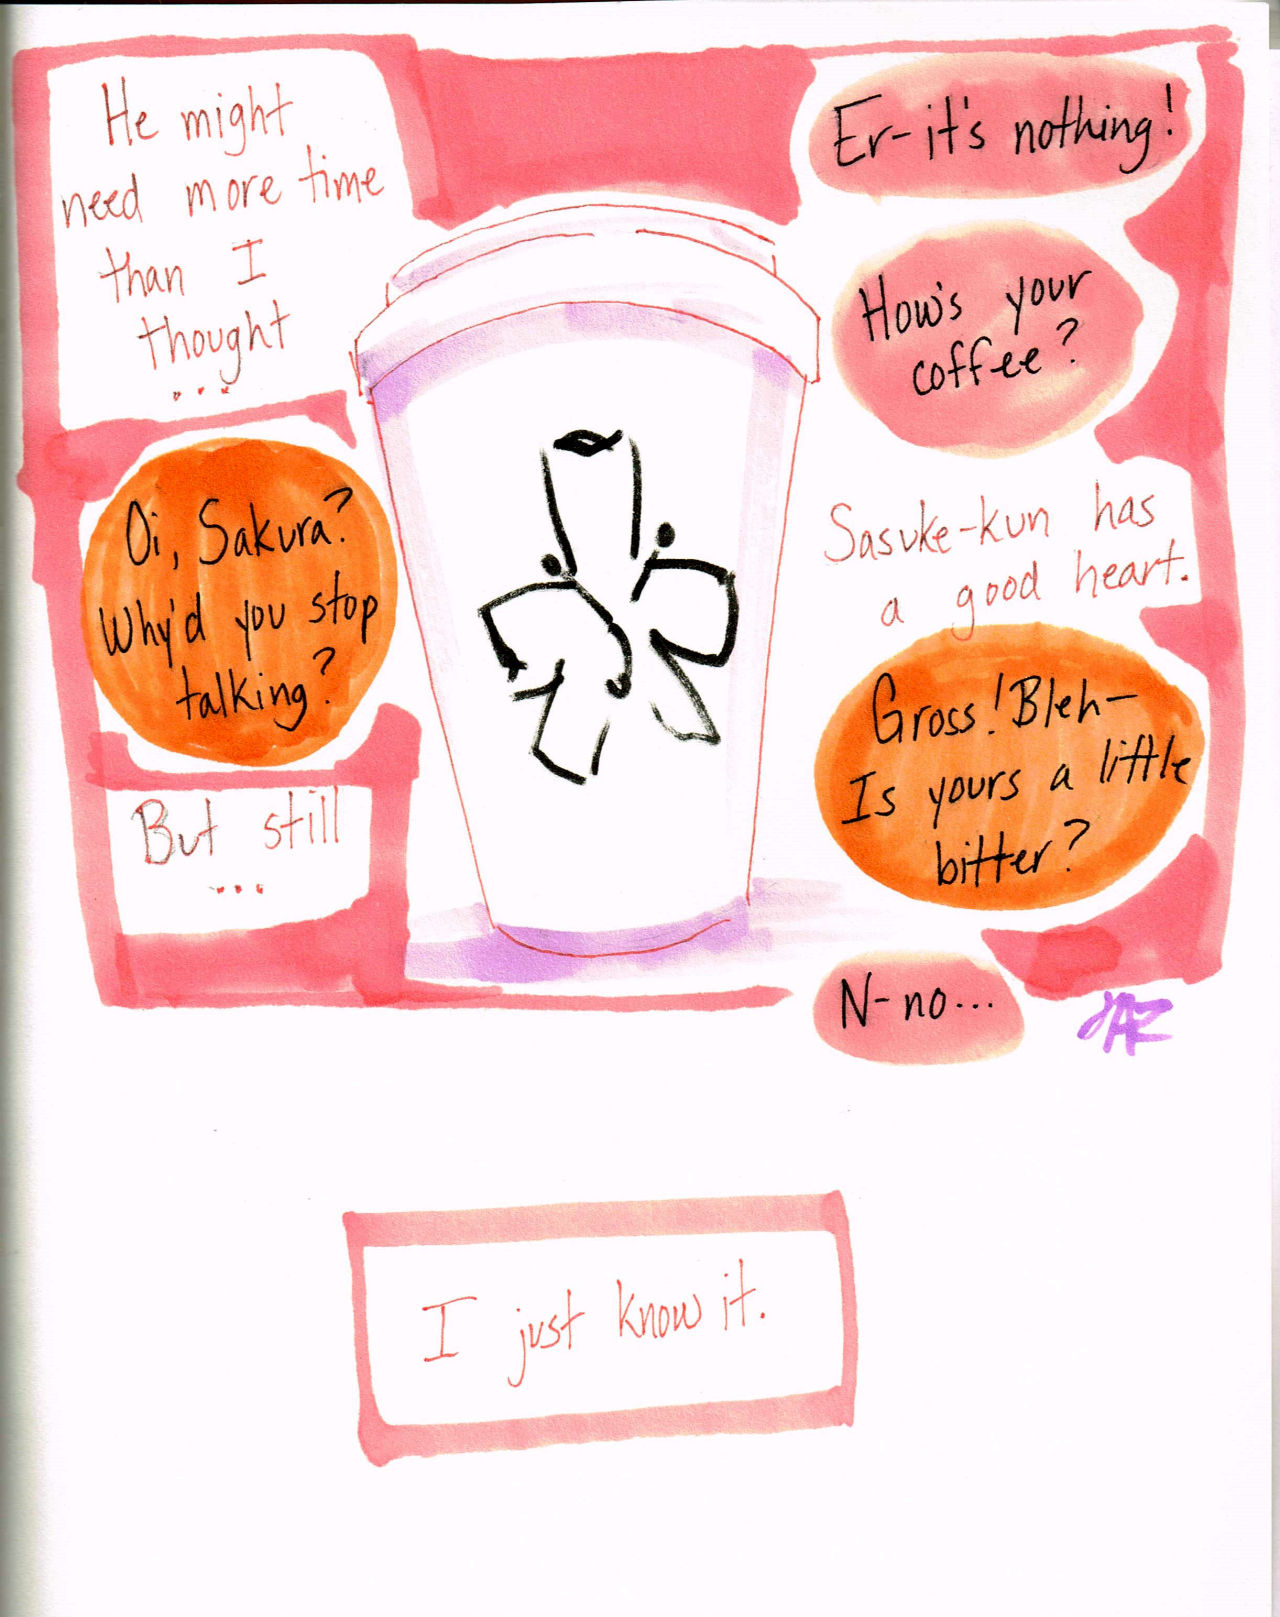 He might
need more time
than I
thought
...
Oi, Sakura?
Why'd you stop
talking?
But still
...
Er-it's nothing!
How's your
coffee?
Sasuke-kun has
a good heart.
Gross! Bleh-
Is yours a little
bitter?
N-no...
JAZ
I just know it.